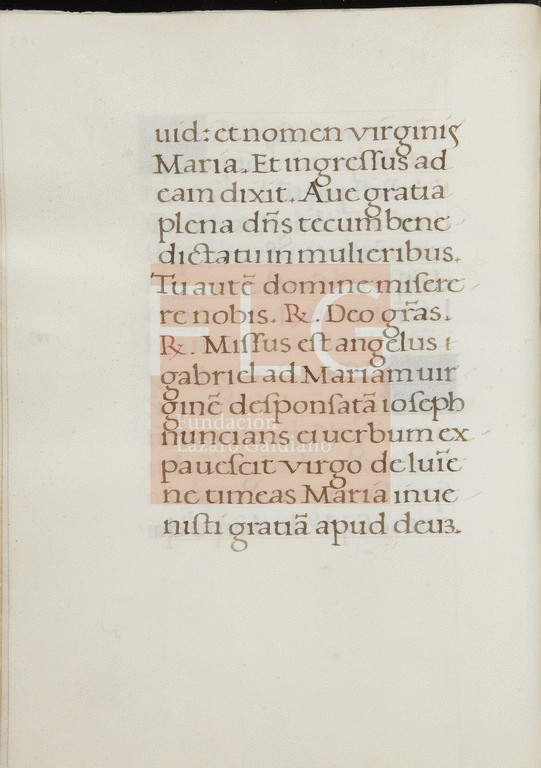 uid: et nomen virginis
Maria. Et ingressus ad
eam dixit. Aue gratia
plena dn̄s tecum bene
dicta tu in mulieribus.
Tu autē domine misere
re nobis. ℟. Deo gr̄as.
℟. Missus est angelus
gabriel ad Mariam uir
ginē desponsatā ioseph
nuncians ei uerbum ex
pauescit virgo de
ne timeas Maria inue
nisti gratiā apud
FLG
Fundación
Lázaro Galdiano